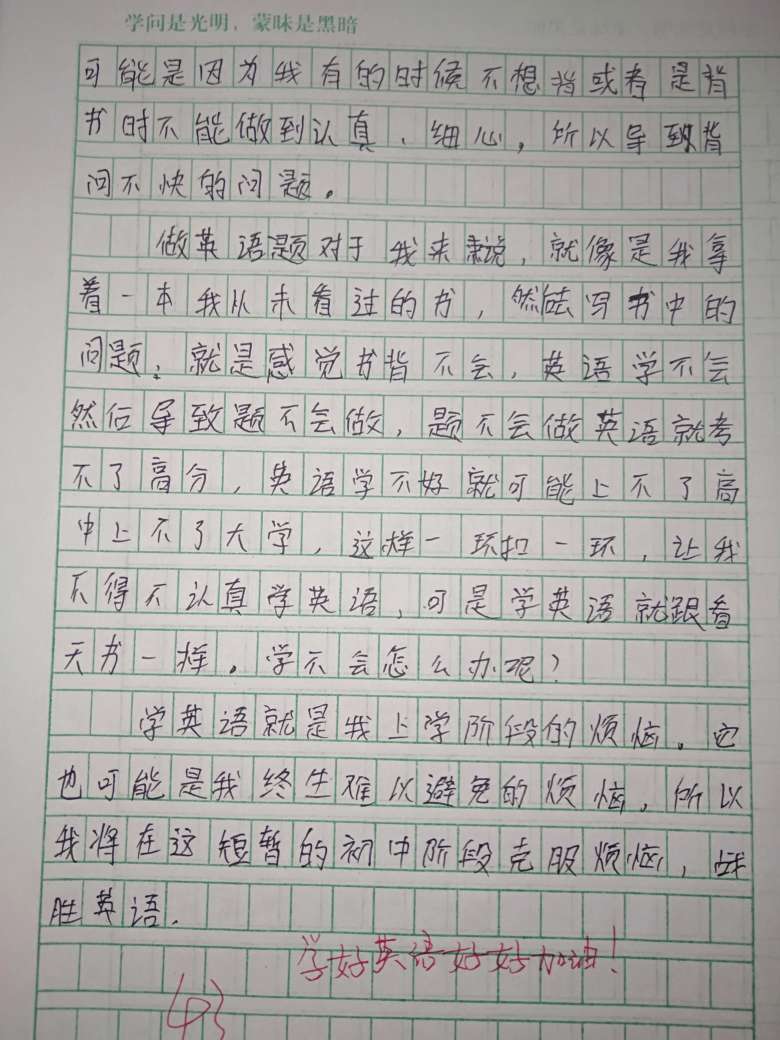 学问是光明，蒙昧是黑暗
可能是因为我有的时候不想背或者是背
书时不能做到认真、细心，所以导致背
问不快的问题。
做英语题对于我来说，就像是我拿
着一本我从未看过的书，然后写书中的
问题，就是感觉书背不会，英语学不会
然后导致题不会做，题不会做英语就考
不了高分，英语学不好就可能上不了高
中上不了大学，这样一环扣一环，让我
不得不认真学英语，可是学英语就跟看
天书一样。学不会怎么办呢？
学英语就是我上学阶段的烦恼。它
也可能是我终生难以避免的烦恼，所以
我将在这短暂的初中阶段克服烦恼，战
胜英语。
学好英语好好加油！
43